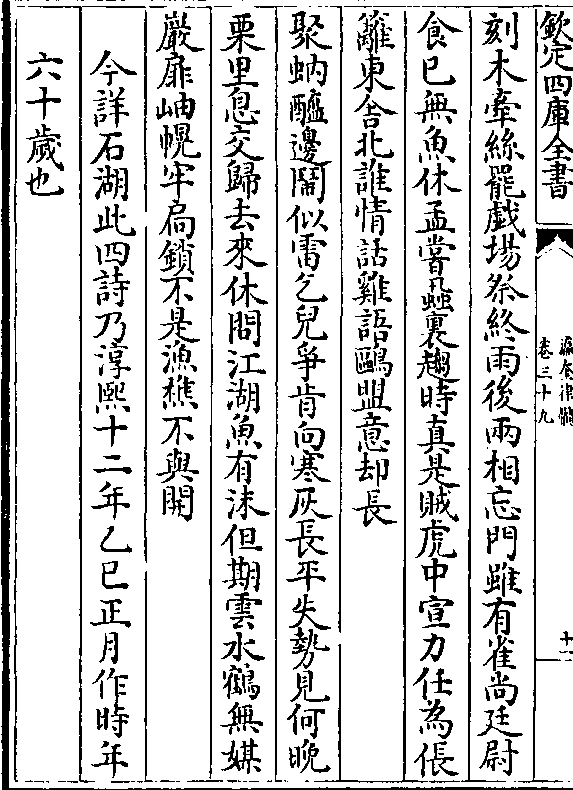 欽定四庫全書
瀛奎律髓
卷三十九
十一
刻木牽絲罷戲場祭終雨後兩相忘門雖有雀尚廷尉
食已無魚休孟嘗虱蝨裏趨時真是賊虎中宣力任為倀
籬東舍北誰情話雞語鷗盟意却長
聚蚋醯邊鬧似雷乞兒爭肯向寒灰長平失勢見何晚
栗里息交歸去來休問江湖魚有沫但期雲水鶴無媒
巖扉岫幌牢扃鎖不是漁樵不與開
今詳石湖此四詩乃淳熙十二年乙巳正月作時年
六十歲也